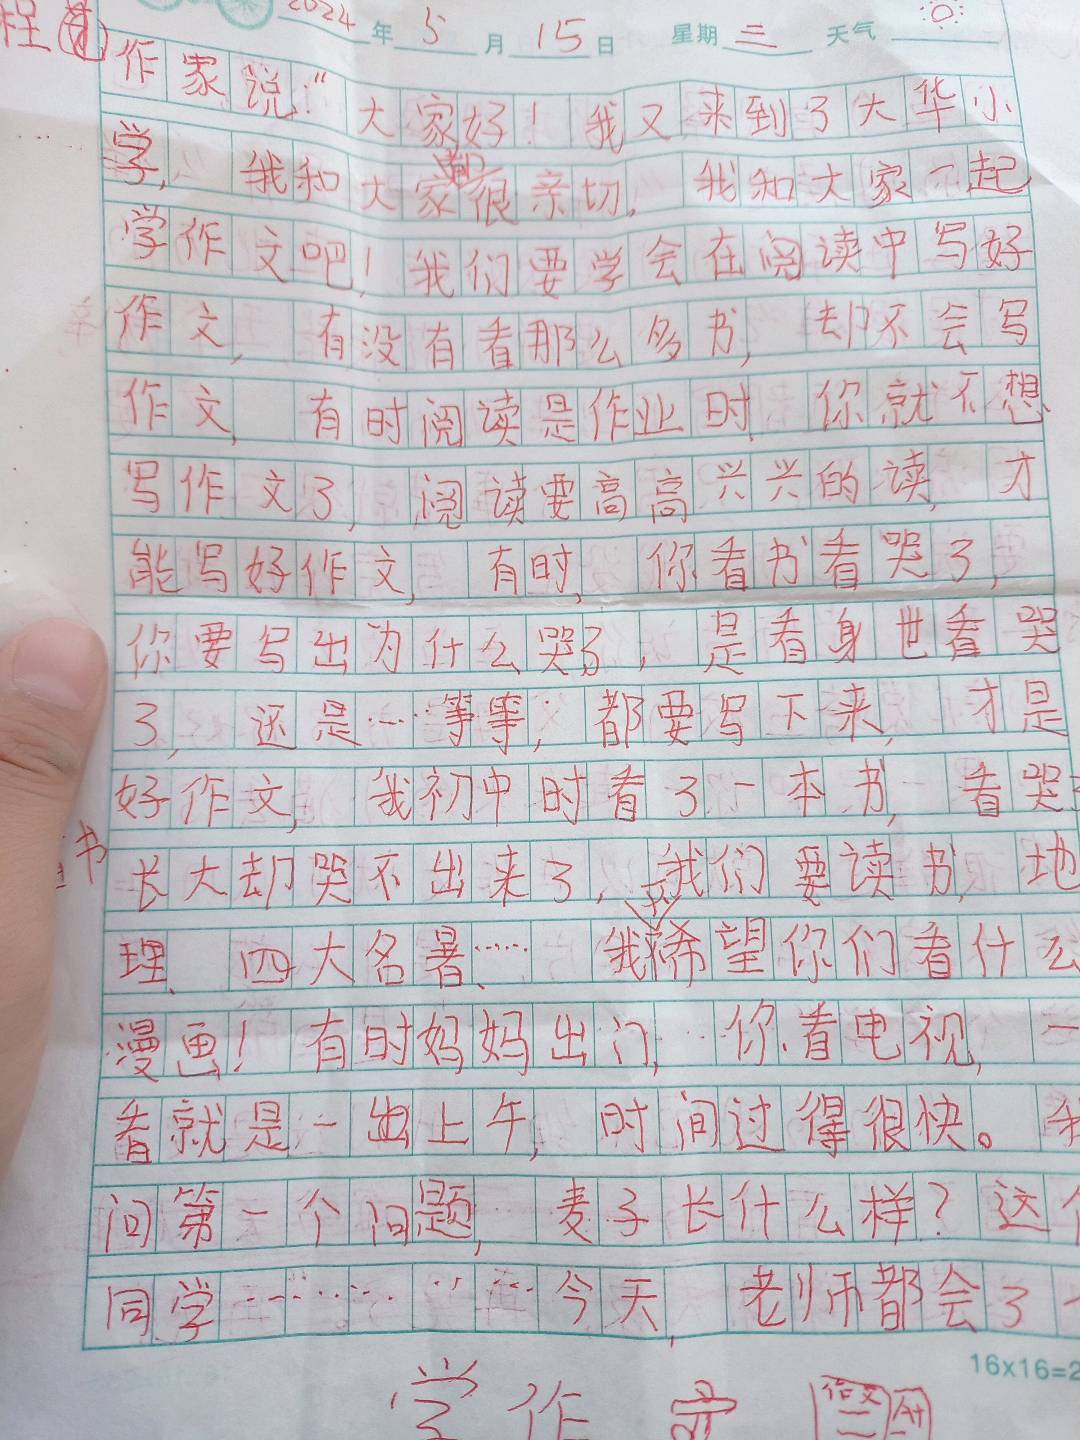 2024年5月15日 星期三 天气
作家说:“大家好！我又来到了大华小
学,我和大家都很亲切.我和大家一起
学作文吧！我们要学会在阅读中写好
作文,有没有看那么多书,却不会写
作文,有时阅读是作业时,你就不想
写作文了,阅读要高高兴兴的读,才
能写好作文,有时,你看书看哭了,
你要写出为什么哭了,是看身世看哭
了,还是……等等;都要写下来,才是
好作文,我初中时看了一本书,看哭
长大却哭不出来了,我们要读书,地
理、四大名署、……我不希望你们看什么
漫画！有时妈妈出门,你看电视,一
看就是一出上午,时间过得很快。我
问第一个问题,麦子长什么样?这个
同学……………今天,老师都会了
16x16=2
学作